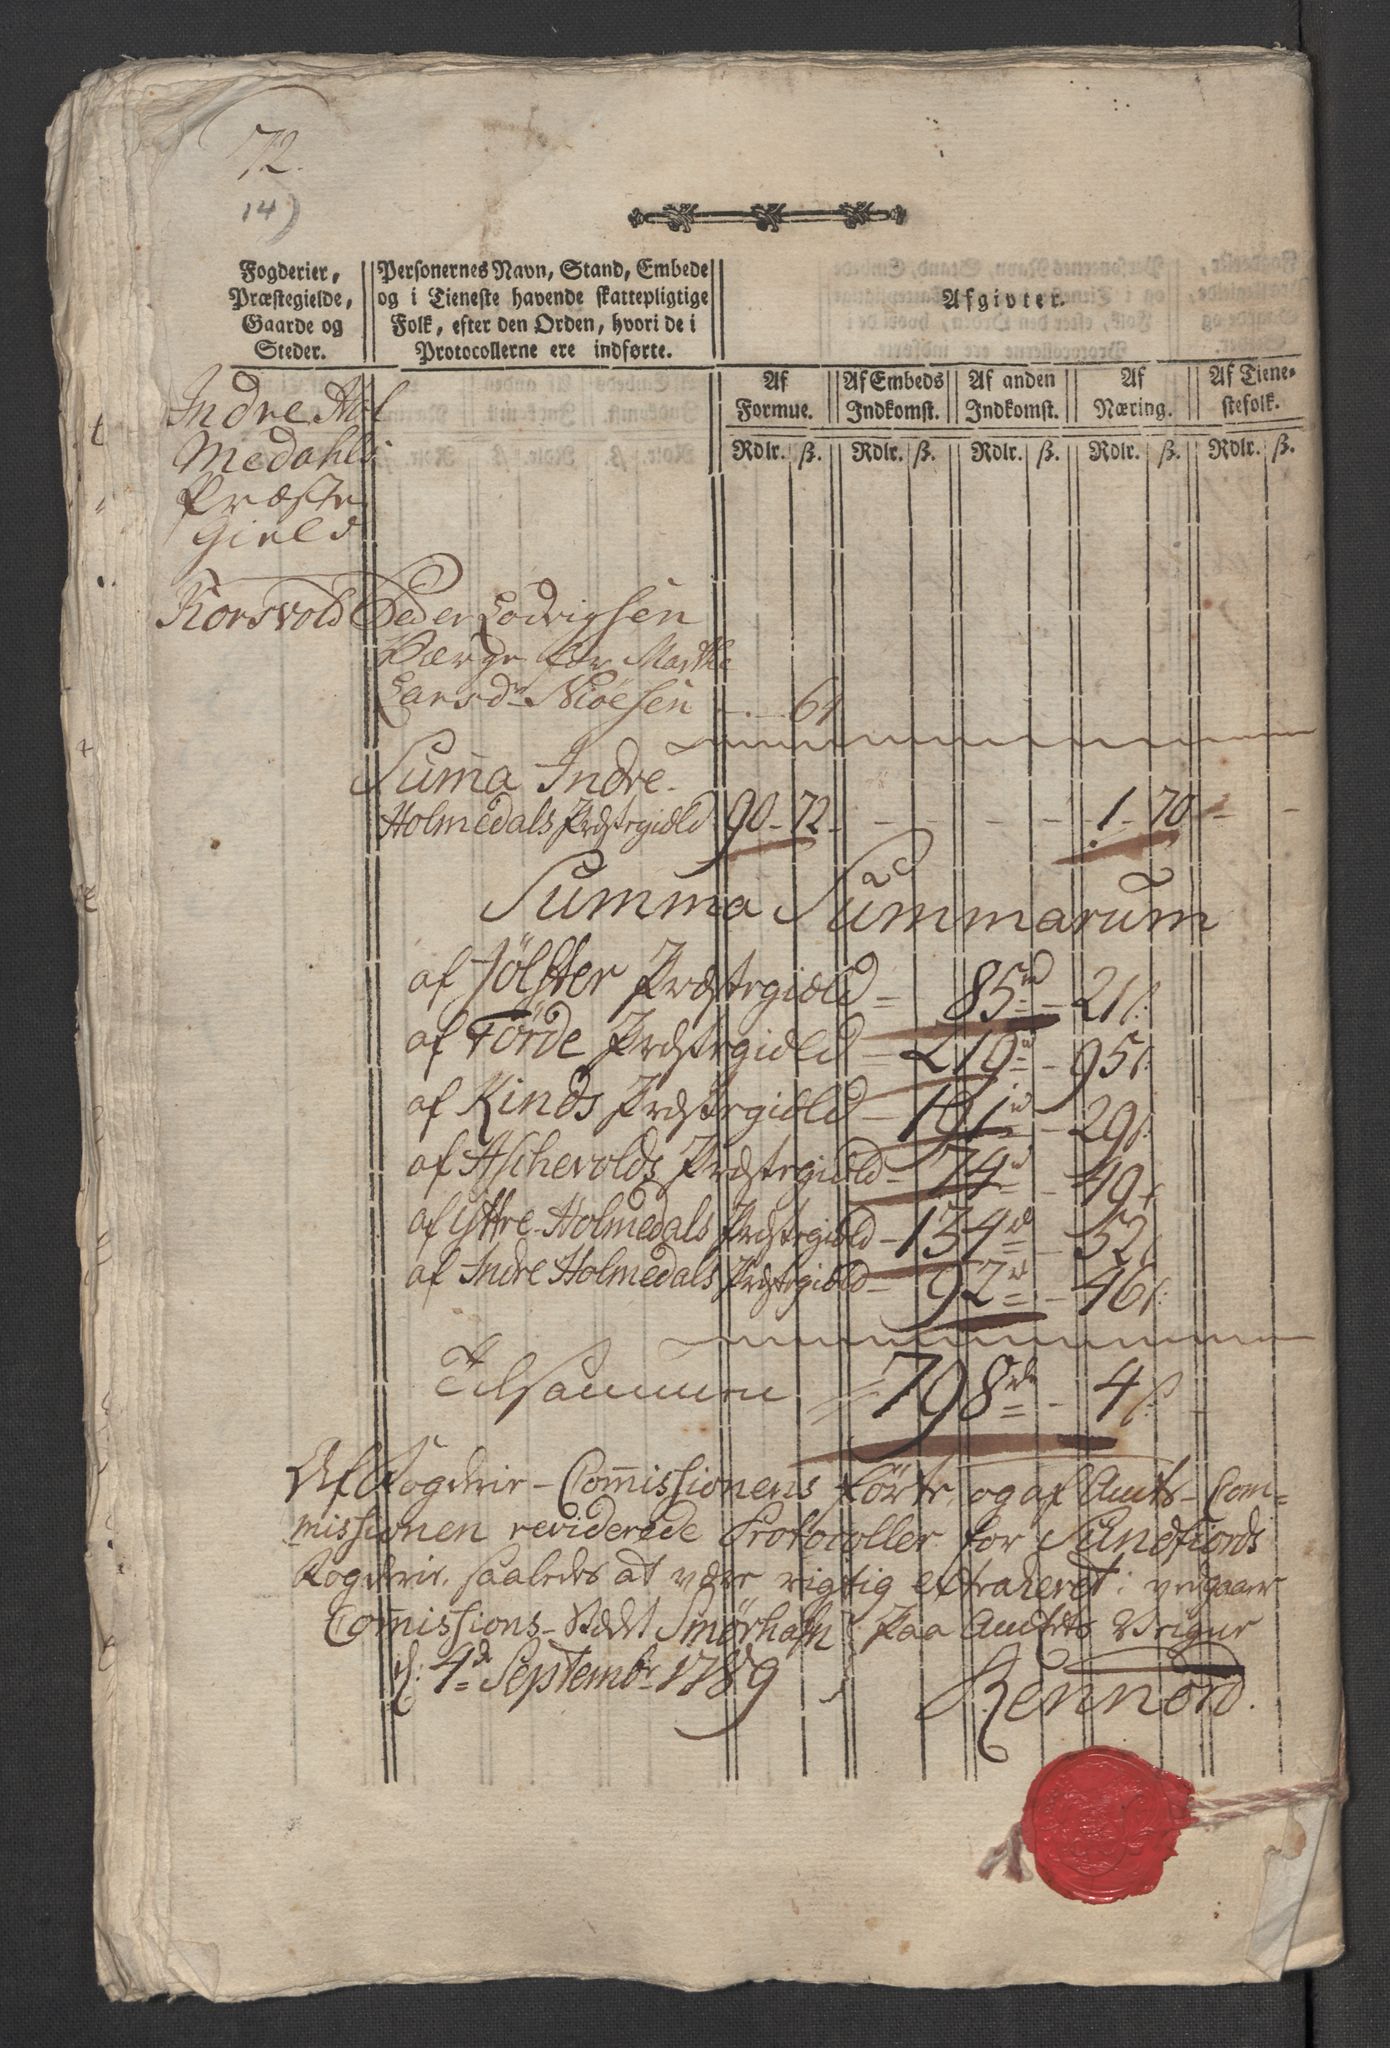 72.
14)
Fogderier,
Præstegielde,
Gaarde og
Steder.
Personernes Navn, Stand, Embede
og i Tieneste havende skattepligtige
Folk, efter den Orden, hvori de i
Protocollerne ere indførte.
Afgivter.
Af
Formue.
Af Embeds
Indkomst.
Af anden
Indkomst.
Af
Næring.
Af Tiene-
stefolk.
Rdlr. ß. Rdlr. ß. Rdlr. ß. Rdlr. ß. Rdlr. ß.
Indre Hol
Medahls
Præste
Gield
Korsvold Peder Lodvigsen
Værge for Marthe
Larsdr Nioesen - . - 61
Suma Indre
Holmedals Præstegiæld 90 - 72 - - - - - 1 - 70 - -
Summa Summarum
af Jölster Præstegiæld = 85rd - 21ß:
af Förde Præstegiæld - 219rd - 95ß:
af Kinds Præstegiæld - 191rd - 29ß:
af Aschevolds Præstegiæld - 74rd - 49ß
af Yttre Holmedals Præstegiæld - 134rd - 52ß
af Indre Holmedals Præstegiæld - 92rd - 46ß:
Tilsammen = 798rd - 4ß:
Af Fogderie-Commissionens förte, og af Amts-Com=
missionen reviderede Protocoller for Sundfiords
Fogderie, saaledes at være rigtig extraheret; vedgaaer
Commissions-Rædt Smörhafn Paa Amtets Vegne
d: 4de Septembr 1789 Hennord.